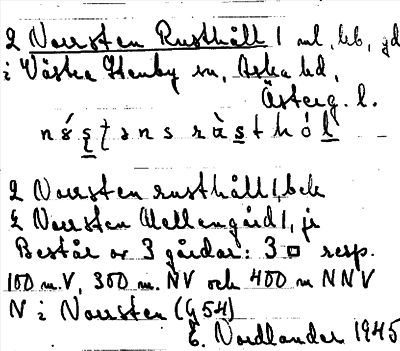 2 Norrsten Rusthåll 1 ml, bb, gd
i Västra Stenby sn, Aska hd,
Österg. l.
nó̜ṣtəns ràsthól
2 Norrsten rusthåll 1, bek
2 Norrsten Mellengård 1, jr
Består av 3 gårdar: 3 □ resp.
100 m.V, 300 m. NV och 400 m NNV
N i Norrsten (G 54)
E. Nordlander 1945